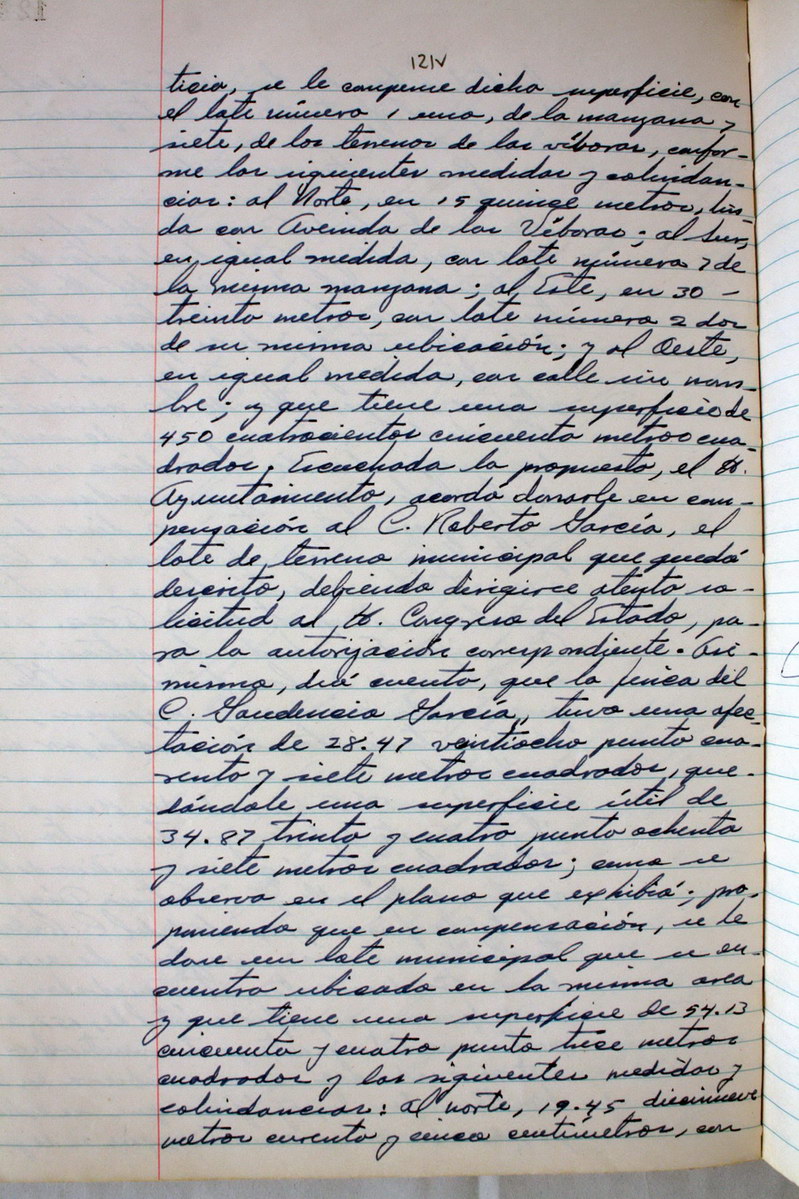 121V
ticia, se le compense dicha superficie, con
el lote número 1 uno, de la manzana 7
siete, de los terrenos de las víboras, confor-
me las siguientes medidas y colindan-
cias: al Norte, en 15 quince metros, lin-
da con Avenida de las Víboras; al Sur,
en igual medida, con lote número 7 de
la misma manzana; al Este, en 30 -
treinta metros, con lote número 2 dos
de su misma ubicación; y al Oeste,
en igual medida, con calle sin nom-
bre; y que tiene una superficie de
450 cuatrocientos cincuenta metros cua-
drados. Escuchada la propuesta, el H.
Ayuntamiento, acordó donarle en com-
pensación al C. Roberto García, el
lote de terreno municipal que quedó
descrito, debiendo dirigirse atento so-
licitud al H. Congreso del Estado, pa-
ra la autorización correspondiente. Asi-
mismo, dió cuenta, que la finca del
C. Gaudencio García, tuvo una afec-
tación de 28.47 veintiocho punto cua-
renta y siete metros cuadrados, que-
dándole una superficie útil de
34.87 treinta y cuatro punto ochenta
y siete metros cuadrados; como se
observa en el plano que exhibió; pro-
poniendo que en compensación, se le
done un lote municipal que se en-
cuentra ubicado en la misma area
y que tiene una superficie de 54.13
cincuenta y cuatro punto trece metros
cuadrados y las siguientes medidas y
colindancias: al norte, 19.45 diecinueve
metros cuarenta y cinco centímetros, con